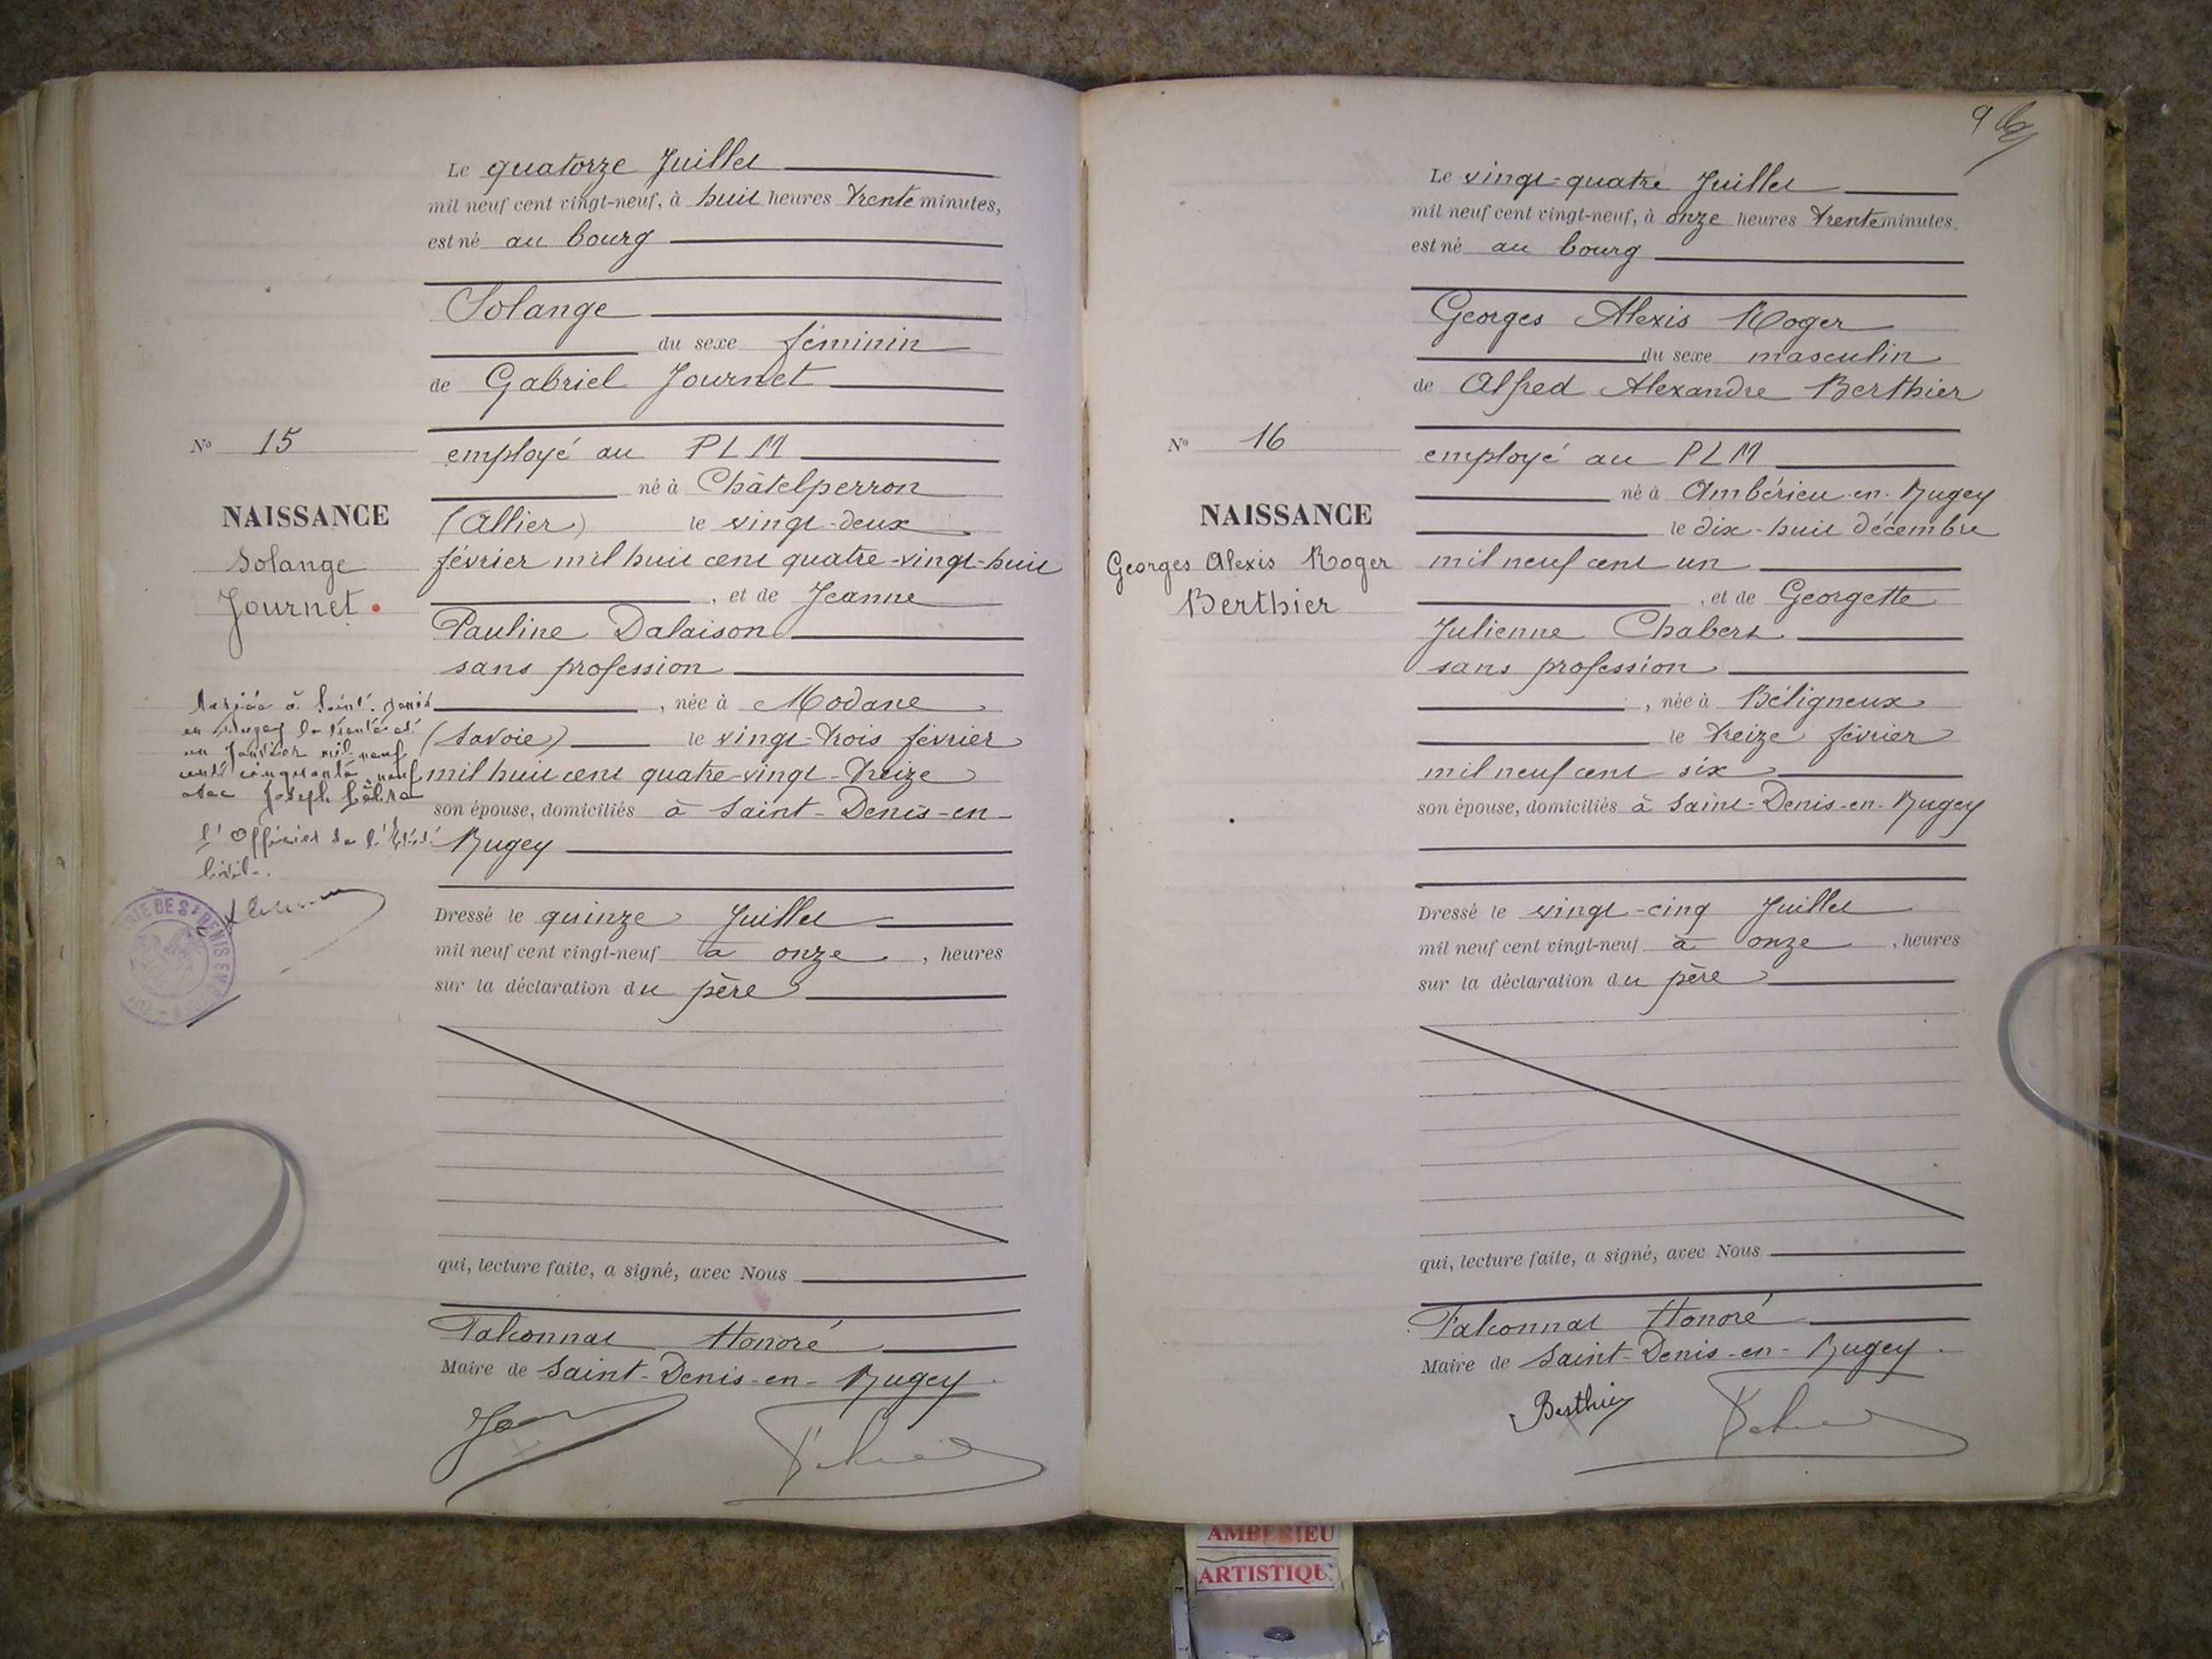 Le quatorze Juillet
mil neuf cent vingt-neuf, à huit heures trente minutes,
est né au bourg
Solange
du sexe féminin
de Gabriel Journet
N° 15
employé au PLM
né à Châtelperron
NAISSANCE
(Allier) le vingt-deux
Solange
février mil huit cent quatre-vingt-huit
Journet.
, et de Jeanne
Pauline Dalaison
sans profession
Mariée à Saint-Denis
en Bugey le trente et
un Janvier mil neuf
cent cinquante neuf
avec Joseph
l'Officier de l'Etat
Civil.
, née à Modane
(Savoie) le vingt-trois février
mil huit cent quatre-vingt-treize
son épouse, domiciliés à Saint-Denis-en-
Bugey
RIE DE St DENIS EN
Dressé le quinze Juillet
mil neuf cent vingt-neuf à onze , heures
sur la déclaration du père
qui, lecture faite, a signé, avec Nous
Falconnat Honoré
Maire de Saint-Denis-en-Bugey.
9
Le vingt-quatre Juillet
mil neuf cent vingt-neuf, à onze heures trente minutes.
est né au bourg
Georges Alexis Roger
du sexe masculin
de Alfred Alexandre Berthier
N° 16
employé au PLM
né à Ambérieu-en-Bugey
NAISSANCE
le dix-huit décembre
Georges Alexis Roger
Berthier
mil neuf cent un
, et de Georgette
Julienne Chabert
sans profession
, née à Béligneux
le treize février
mil neuf cent six
son épouse, domiciliés à Saint-Denis-en-Bugey
Dressé le vingt-cinq Juillet
mil neuf cent vingt-neuf à onze , heures
sur la déclaration du père
qui, lecture faite, a signé, avec Nous
Falconnat Honoré
Maire de Saint-Denis-en-Bugey.
Berthier
AMBERIEU
ARTISTIQU